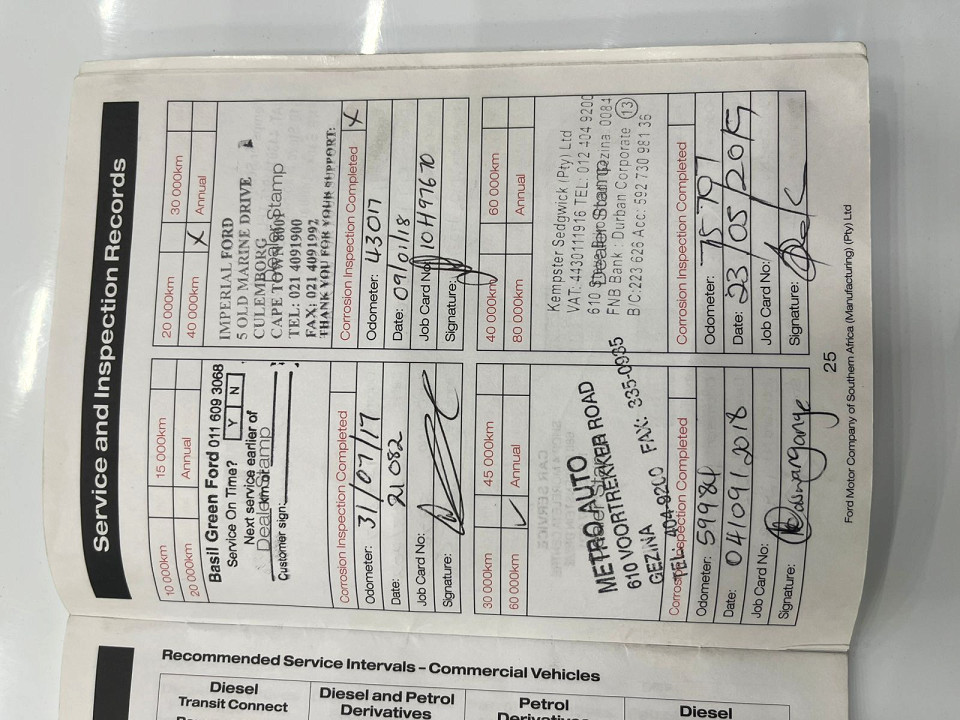 Service and Inspection Records
10 000km
15 000km
20 000km
Annual
Basil Green Ford 011 609 3068
Service On Time? Y N
Next service earlier of
Dealer Stamp
Customer sign:
Corrosion Inspection Completed
Odometer: 21 082
Date: 31/07/17
Job Card No:
Signature:
20 000km
30 000km
40 000km X
Annual
IMPERIAL FORD
5 OLD MARINE DRIVE
CULEMBORG
CAPE TOWN 8001
Dealer Stamp
TEL: 021 4091900
FAX: 021 4091992
THANK YOU FOR YOUR SUPPORT:
Corrosion Inspection Completed X
Odometer: 43017
Date: 09/01/18
Job Card No: 10H97670
Signature:
30 000km
45 000km
60 000km ✓
Annual
METRO AUTO
Dealer Stamp
610 VOORTREKKER ROAD
GEZINA
TEL: 404-9200 FAX: 335-0935
Corrosion Inspection Completed
Odometer: 59984
Date: 04/09/2018
Job Card No:
Signature:
40 000km
60 000km
80 000km
Annual
Kempster Sedgwick (Pty) Ltd
VAT: 4430111916 TEL: 012 404 9200
610
Dealer Stamp
Gezina 0084
FNB Bank : Durban Corporate 13
B/C:223 626 Acc: 592 730 981 36
Corrosion Inspection Completed
Odometer: 75797
Date: 23/05/2019
Job Card No:
Signature:
25
Ford Motor Company of Southern Africa (Manufacturing) (Pty) Ltd
Recommended Service Intervals – Commercial Vehicles
Diesel
Transit Connect
Diesel and Petrol
Derivatives
Petrol
Derivatives
Diesel